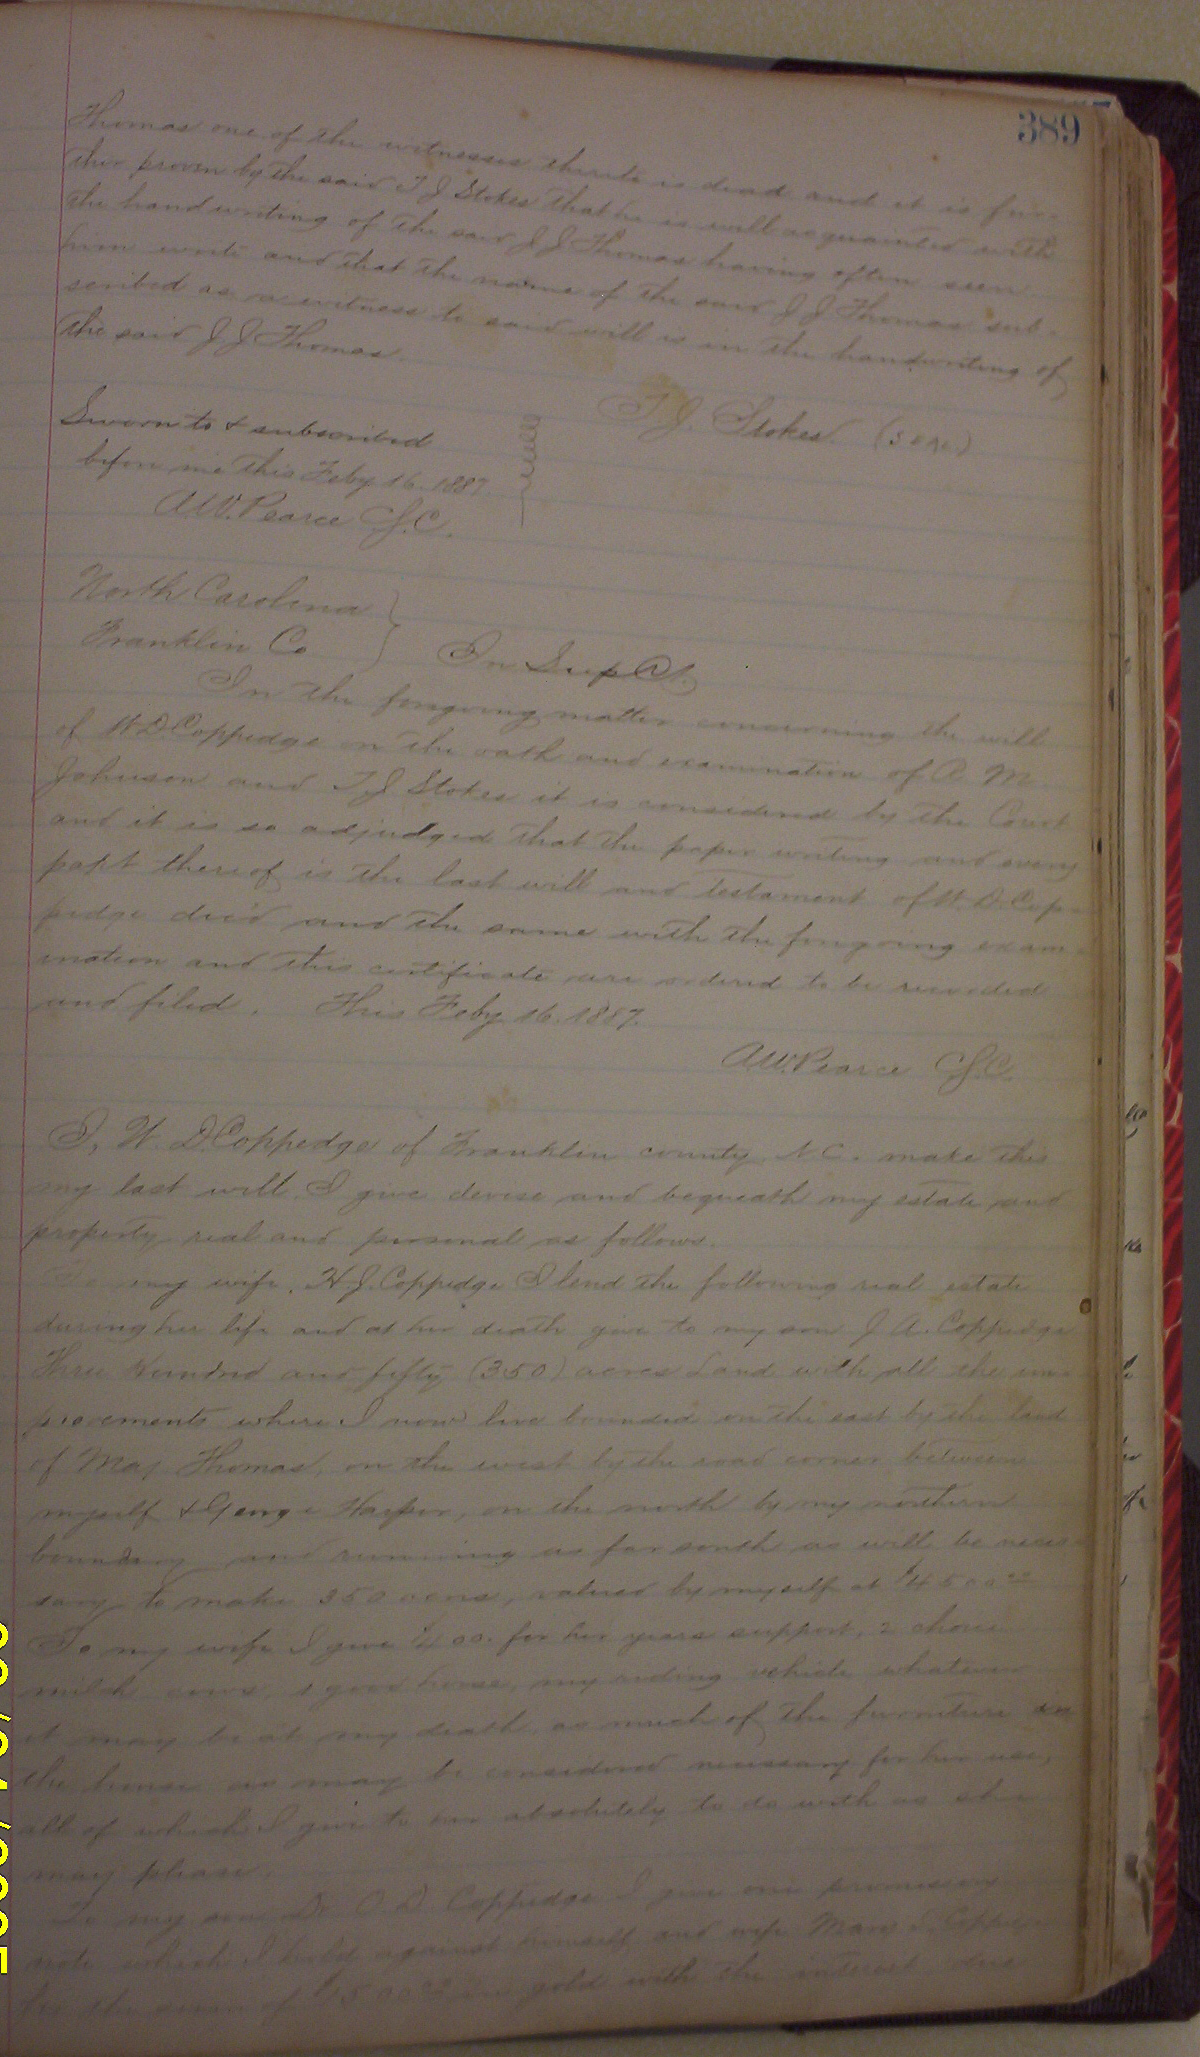 389
Thomas one of the witnesses thereto is dead and it is fur-
ther proven by the said T J Stokes that he is well acquainted with
the handwriting of the said J J Thomas having often seen
him write and that the name of the said J J Thomas sub-
scribed as a witness to said will is in the handwriting of
the said J J Thomas
T J. Stokes (seal)
Sworn to & subscribed
before me this Feby 16. 1887
A.W. Pearce C.S.C.
North Carolina
Franklin Co
In Sup Ct
In the foregoing matter concerning the will
of W. D. Coppedge on the oath and examination of
Johnson and T. J Stokes it is considered by the Court
and it is so adjudged that the paper writing and every
part thereof is the last will and testament of W. D. Cop-
pedge dec'd and the same with the foregoing exam-
ination and this certificate are ordered to be recorded
and filed. This Feby 16. 1887.
A.W. Pearce C.S.C.
I, W. D. Coppedge of Franklin county N.C. make this
my last will. I give devise and bequeath my estate and
property real and personal as follows.
my wife, H. J. Coppedge I lend the following real estate
during her life and at her death give to my son J. A. Coppedge
Three Hundred and fifty (350) acres Land with all the im-
provements where I now live bounded on the east by the land
of Maj Thomas, on the west by the road corner between
myself & George Harper, on the north by my northern
boundary and running as far south as will be neces-
sary to make 350 acres, valued by myself at $4500 00
To my wife I give $400. for her years support, 2 choice
milch cows, 1 good horse, my riding vehicle whatever
it may be at my death, as much of the furniture in
the house as may be considered necessary for her use,
all of which I give to her absolutely to do with as she
may please.
To my son Dr. O. D. Coppedge I give one promissory
note which I hold against himself and wife
for the sum of in gold with the interest due